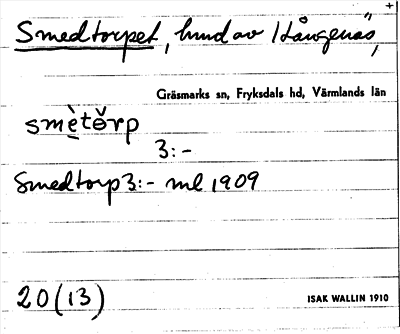 +
Smedtorpet, hund av Långenäs,
Gräsmarks sn, Fryksdals hd, Värmlands län
smètĕrp
3:-
Smedtorp 3:- ml 1909
20 (13)
ISAK WALLIN 1910